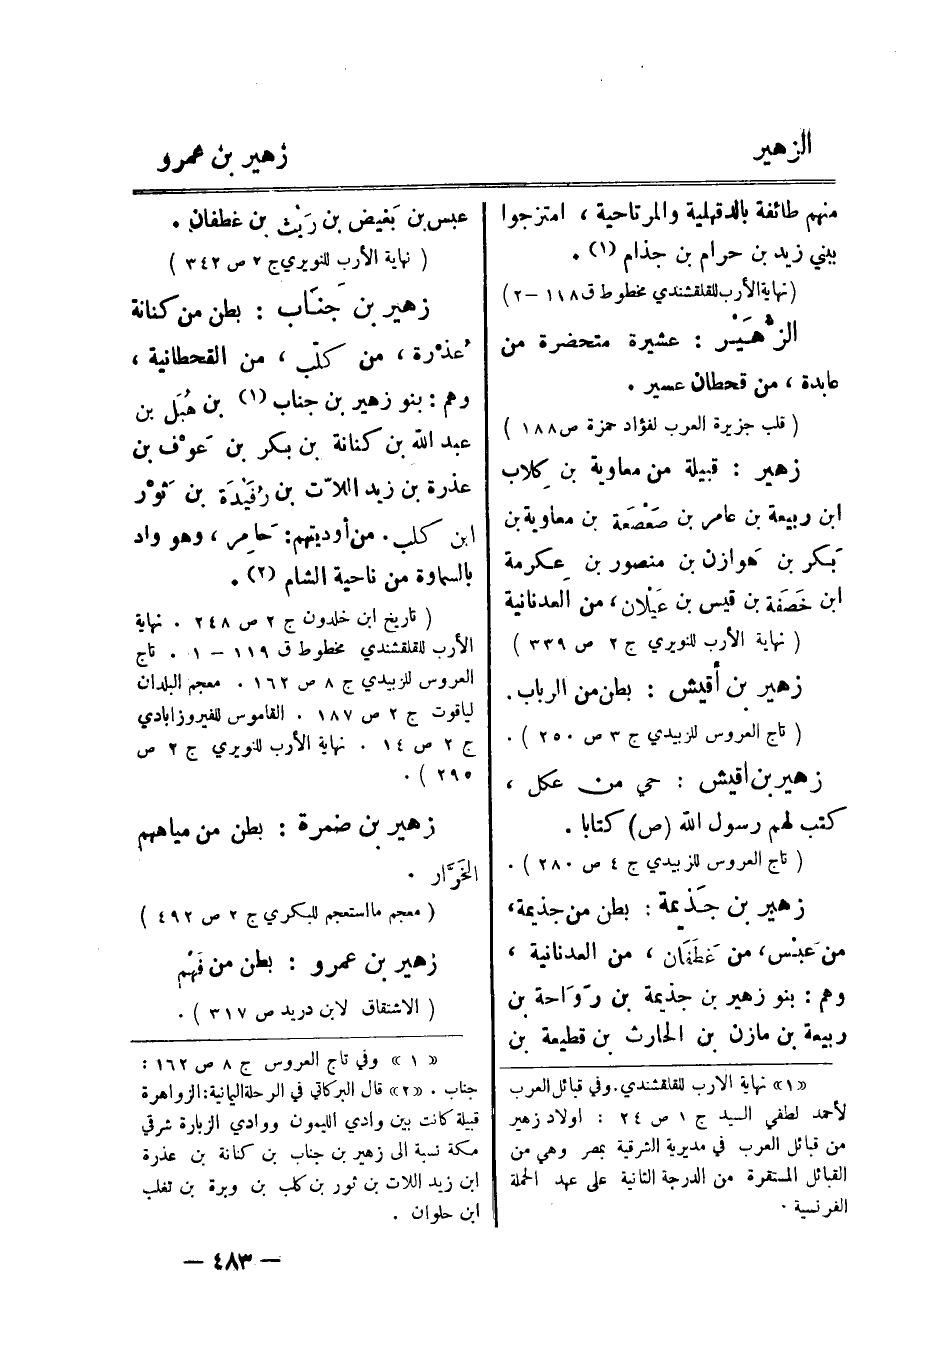 الزهير
زهير بن عمرو
منهم طائفة بالدقهلية والمرتاحية ، امتزجوا
ببني زيد بن حرام بن جذام (١) .
(نهاية الأرب للقلقشندي مخطوط ق ١١٨ – ٢)
الزُّهَيْر : عشيرة متحضرة من
عابدة ، من قحطان عسير .
( قلب جزيرة العرب لفؤاد حمزة ص ١٨٨ )
زهير : قبيلة من معاوية بن كِلاب
ابن ربيعة بن عامر بن صَعْصَعَة بن معاوية بن
بَكر بن هَوازن بن منصور بن عِكرمة
ابن خَصَفَة بن قيس بن عَيْلان ، من العدنانية
( نهاية الأرب للنويري ج ٢ ص ٣٣٩ )
زهير بن أُقيش : بطن من الرباب .
( تاج العروس للزبيدي ج ٣ ص ٢٥٠ ) .
زهير بن أقيش : حي من عكل ،
كتب لهم رسول الله (ص) كتابا .
( تاج العروس للزبيدي ج ٤ ص ٢٨٠ ) .
زهير بن جَذيمة : بطن من جذيمة ،
من عَبْس ، من غَطَفَان ، من العدنانية ،
وهم : بنو زهير بن جذيمة بن رَوَاحة بن
ربيعة بن مازن بن الحارث بن قطيعة بن
«١» نهاية الارب للقلقشندي . وفي قبائل العرب
لأحمد لطفي السيد ج ١ ص ٢٤ : اولاد زهير
من قبائل العرب في مديرية الشرقية بمصر وهي من
القبائل المستقرة من الدرجة الثانية على عهد الحملة
الفرنسية .
عبس بن بَغيض بن رَيْث بن غطفان .
( نهاية الأرب للنويري ج ٢ ص ٣٤٢ )
زهير بن جَنَاب : بطن من كنانة
عُذْرة ، من كَلْب ، من القحطانية ،
وهم : بنو زهير بن جناب (١) بن هُبَل بن
عبد الله بن كنانة بن بكر بن عَوْف بن
عذرة بن زيد اللاّت بن رُفَيْدَة بن ثَوْر
ابن كلب . من أوديتهم : حَامِر ، وهو واد
بالسماوة من ناحية الشام (٢) .
( تاريخ ابن خلدون ج ٢ ص ٢٤٨ . نهاية
الأرب للقلقشندي مخطوط ق ١١٩ – ١ . تاج
العروس للزبيدي ج ٨ ص ١٦٢ . معجم البلدان
لياقوت ج ٢ ص ١٨٧ . القاموس للفيروزابادي
ج ٢ ص ١٤ . نهاية الأرب للنويري ج ٢ ص
٢٩٥ ) .
زهير بن ضمرة : بطن من مياههم
الخَوَّار .
( معجم ما استعجم للبكري ج ٢ ص ٤٩٢ )
زهير بن عمرو : بطن من فَهْم
( الاشتقاق لابن دريد ص ٣١٧ ) .
« ١ » وفي تاج العروس ج ٨ ص ١٦٢ :
جناب . «٢» قال البركاتي في الرحلة اليمانية : الزواهرة
قبيلة كانت بين وادي الليمون ووادي الزبارة شرقي
مكة نسبة الى زهير بن جناب بن كنانة بن عذرة
ابن زيد اللات بن ثور بن كلب بن وبرة بن تغلب
ابن حلوان .
– ٤٨٣ –